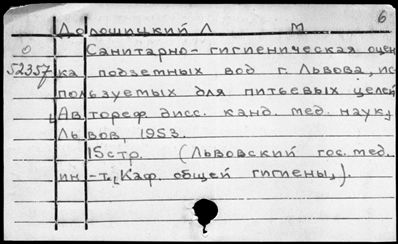 6
Долошицкий Л М
О Санитарно-гигиеническая оцен
52357 ка подземных вод г. Львова, ис
пользуемых для питьевых целей
Автореф дисс. канд. мед. наук,
Львов, 1953.
15 стр. (Львовский гос. мед.
ин-т, Каф. общей гигиены,).